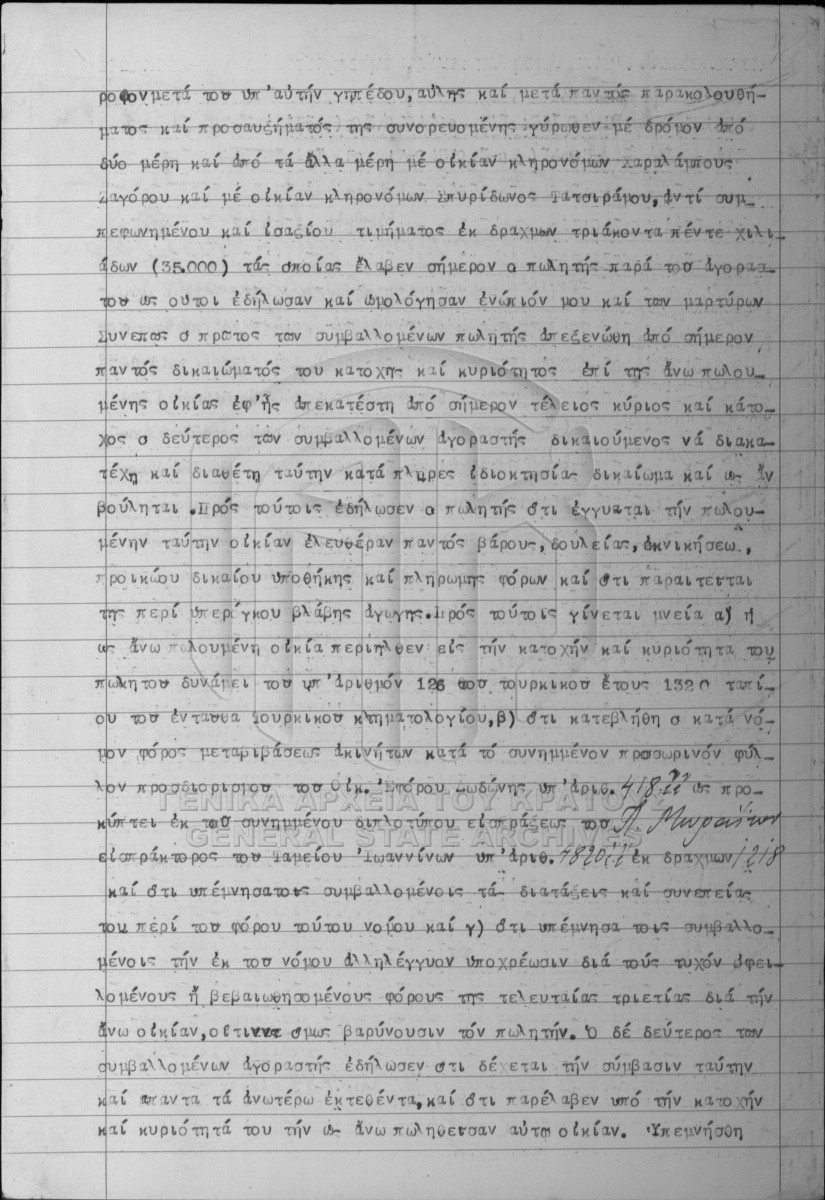 ροφον μετά του υπ'αὐτήν γηπέδου,αὐλης καί μετά παντός παρακολουθή-
ματος καί προσαυξήματός της συνορευομένης γύρωθεν μέ δρόμον ἀπό
δύο μέρη καί ἀπό τά ἄλλα μέρη μέ οἰκίαν κληρονόμων Χαραλάμπους
Ζαγόρου καί μέ οἰκίαν κληρονόμων Σπυρίδωνος Τατσιράμου,ἀντί συμ-
πεφωνημένου καί ἰσαξίου τιμήματος ἐκ δραχμων τριάκοντα πέντε χιλι-
άδων (35.000) τάς οποίας ἔλαβεν σήμερον ο πωλητής παρά του ἀγορασ-
του ως ουτοι ἐδήλωσαν καί ωμολόγησαν ἐνώπιόν μου καί των μαρτύρων
Συνεπως ο πρωτος των συμβαλλομένων πωλητής ἀπεξενώθη ἀπό σήμερον
παντός δικαιώματός του κατοχης καί κυριότητος ἐπί της ἄνω πωλου-
μένης οἰκίας ἐφ'ἧς ἀπεκατέστη ἀπό σήμερον τέλειος κύριος καί κάτο-
χος ο δεύτερος των συμβαλλομένων ἀγοραστής δικαιούμενος νά διακα-
τέχη καί διαθέτη ταύτην κατά πληρες ἰδιοκτησίας δικαίωμα καί ως ἄν
βούληται .Πρός τούτοις ἐδήλωσεν ο πωλητής ὅτι ἐγγυαται τήν πωλου-
μένην ταύτην οἰκίαν ἐλευθέραν παντός βάρους,δουλείας,ἐκνικήσεως,
προικώου δικαίου υποθήκης καί πληρωμης φόρων καί ὅτι παραιτειται
της περί υπερόγκου βλάβης ἀγωγης.Πρός τούτοις γίνεται μνεία α) ἡ
ως ἄνω πωλουμένη οἰκία περιηλθεν εἰς τήν κατοχήν καί κυριότητα του
πωλητου δυνάμει του υπ'ἀριθμόν 126 του τουρκικου ἔτους 1320 ταπί-
ου του ἐνταυθα Τουρκικου κτηματολογίου,β) ὅτι κατεβλήθη ο κατά νό-
μον φόρος μεταβιβάσεως ἀκινήτων κατά τό συνημμένον προσωρινόν φύλ-
λον προσδιορισμου του Οἰκ. Ἐφόρου Δωδώνης υπ'ἀριθ. 418 ως προ-
κύπτει ἐκ του συνημμένου διπλοτύπου εἰσπράξεως του
εἰσπράκτορος του Ταμείου Ἰωαννίνων υπ'ἀριθ. 4820 ἐκ δραχμων 1218
καί ὅτι υπέμνησα τοις συμβαλλομένοις τάς διατάξεις καί συνεπείας
του περί του φόρου τούτου νόμου καί γ) ὅτι υπέμνησα τοις συμβαλλο-
μένοις τήν ἐκ του νόμου ἀλληλέγγυον υποχρέωσιν διά τούς τυχόν ὀφει-
λομένους ἤ βεβαιωθησομένους φόρους της τελευταίας τριετίας διά τήν
ἄνω οἰκίαν,οἵτινες ὅμως βαρύνουσιν τόν πωλητήν. Ὁ δέ δεύτερος των
συμβαλλομένων ἀγοραστής ἐδήλωσεν ὅτι δέχεται τήν σύμβασιν ταύτην
καί απαντα τά ἀνωτέρω ἐκτεθέντα,καί ὅτι παρέλαβεν υπό τήν κατοχήν
καί κυριότητά του τήν ως ἄνω πωληθεισαν αὐτω οἰκίαν. Ὑπεμνήσθη
ΓΕΝΙΚΑ ΑΡΧΕΙΑ ΤΟΥ ΚΡΑΤΟΥΣ
GENERAL STATE ARCHIVES